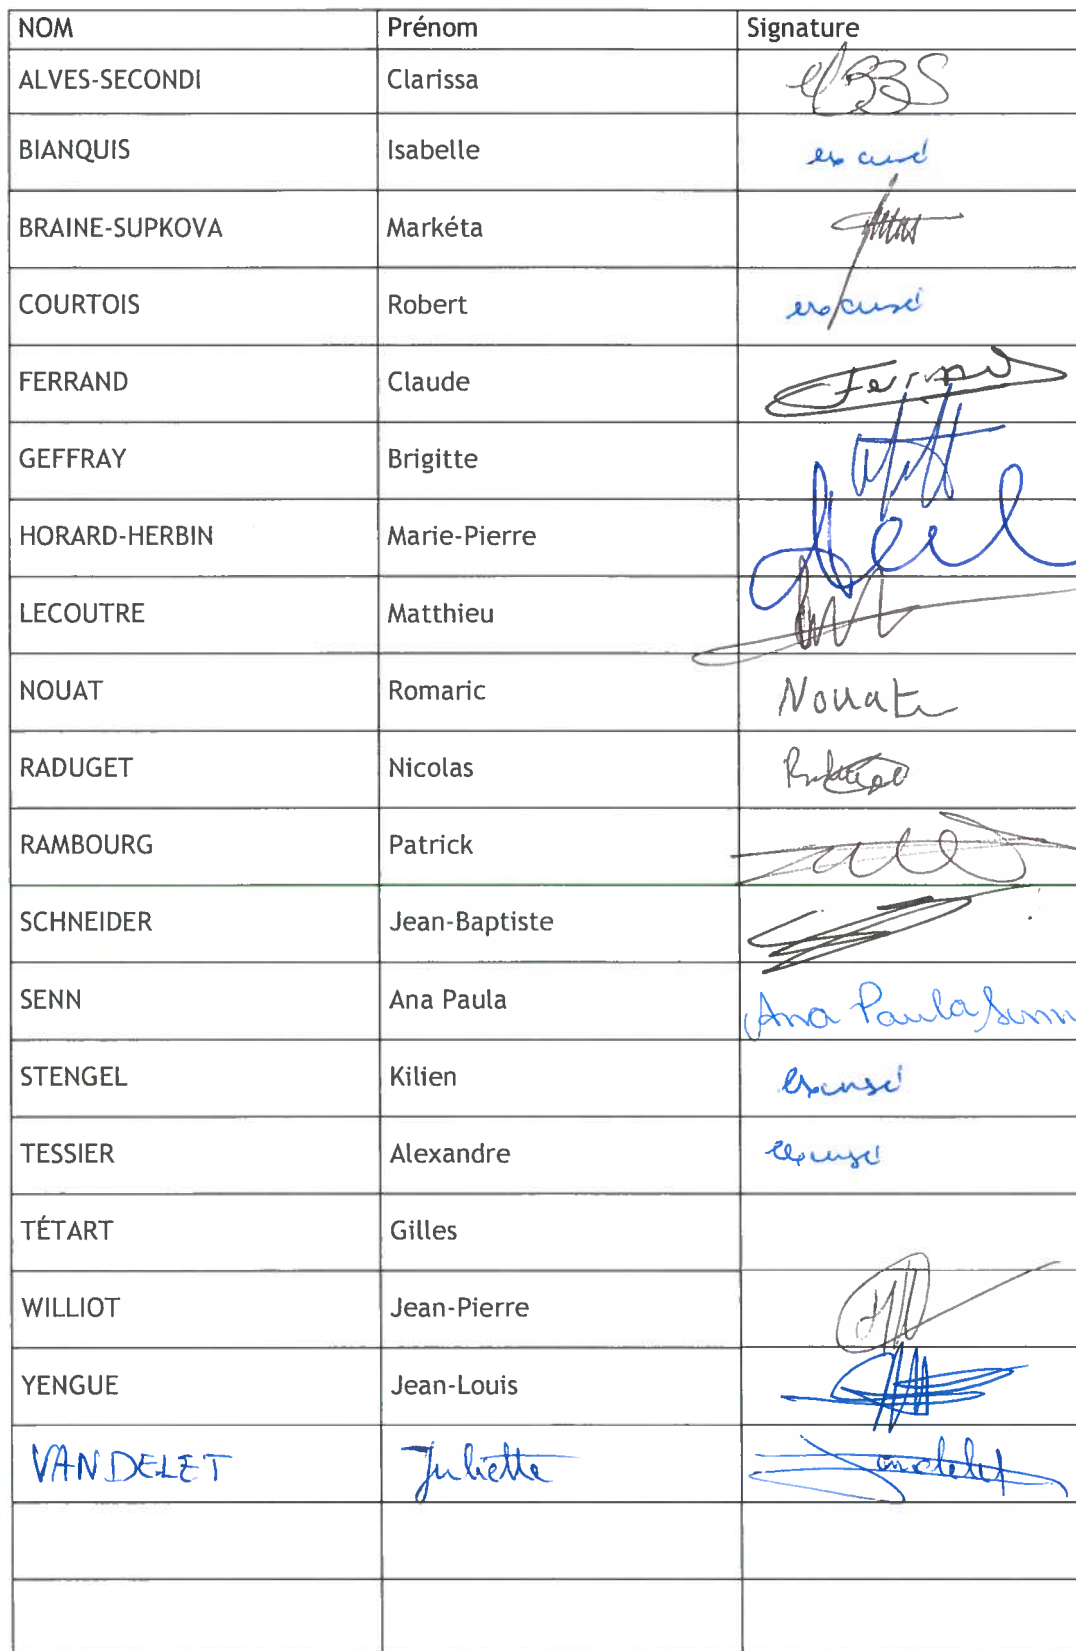 NOM Prénom Signature
ALVES-SECONDI Clarissa
BIANQUIS Isabelle excusé
BRAINE-SUPKOVA Markéta
COURTOIS Robert excusé
FERRAND Claude Ferrand
GEFFRAY Brigitte
HORARD-HERBIN Marie-Pierre
LECOUTRE Matthieu
NOUAT Romaric Nouat
RADUGET Nicolas
RAMBOURG Patrick
SCHNEIDER Jean-Baptiste
SENN Ana Paula Ana Paula Senn
STENGEL Kilien excusé
TESSIER Alexandre excusé
TÉTART Gilles
WILLIOT Jean-Pierre
YENGUE Jean-Louis
VANDELET Juliette Vandelet